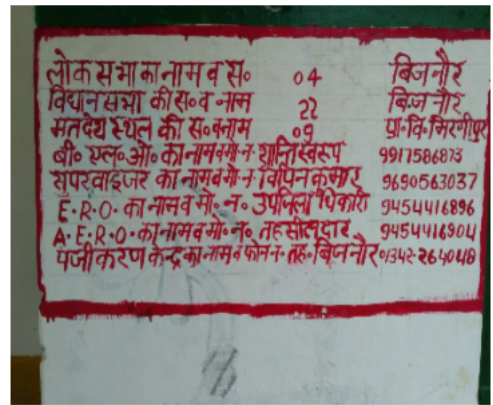 लोक सभा का नाम व सं॰ 04 बिजनौर
विधान सभा की सं॰ व नाम 22 बिजनौर
मतदेय स्थल की सं॰ व नाम 09 प्रा॰ वि॰ मिरगीपुर
बी॰ एल॰ ओ॰ का नाम व मो॰ न॰ शान्तिस्वरूप 9917586873
सुपरवाइजर का नाम व मो॰ न॰ विपिन कुमार 9690563037
E.R.O. का नाम व मो॰ न॰ उपजिलाधिकारी 9454416896
A.E.R.O. का नाम व मो॰ न॰ तहसीलदार 9454416904
पंजीकरण केन्द्र का नाम व फोन न॰ तह॰ बिजनौर 01342-264048